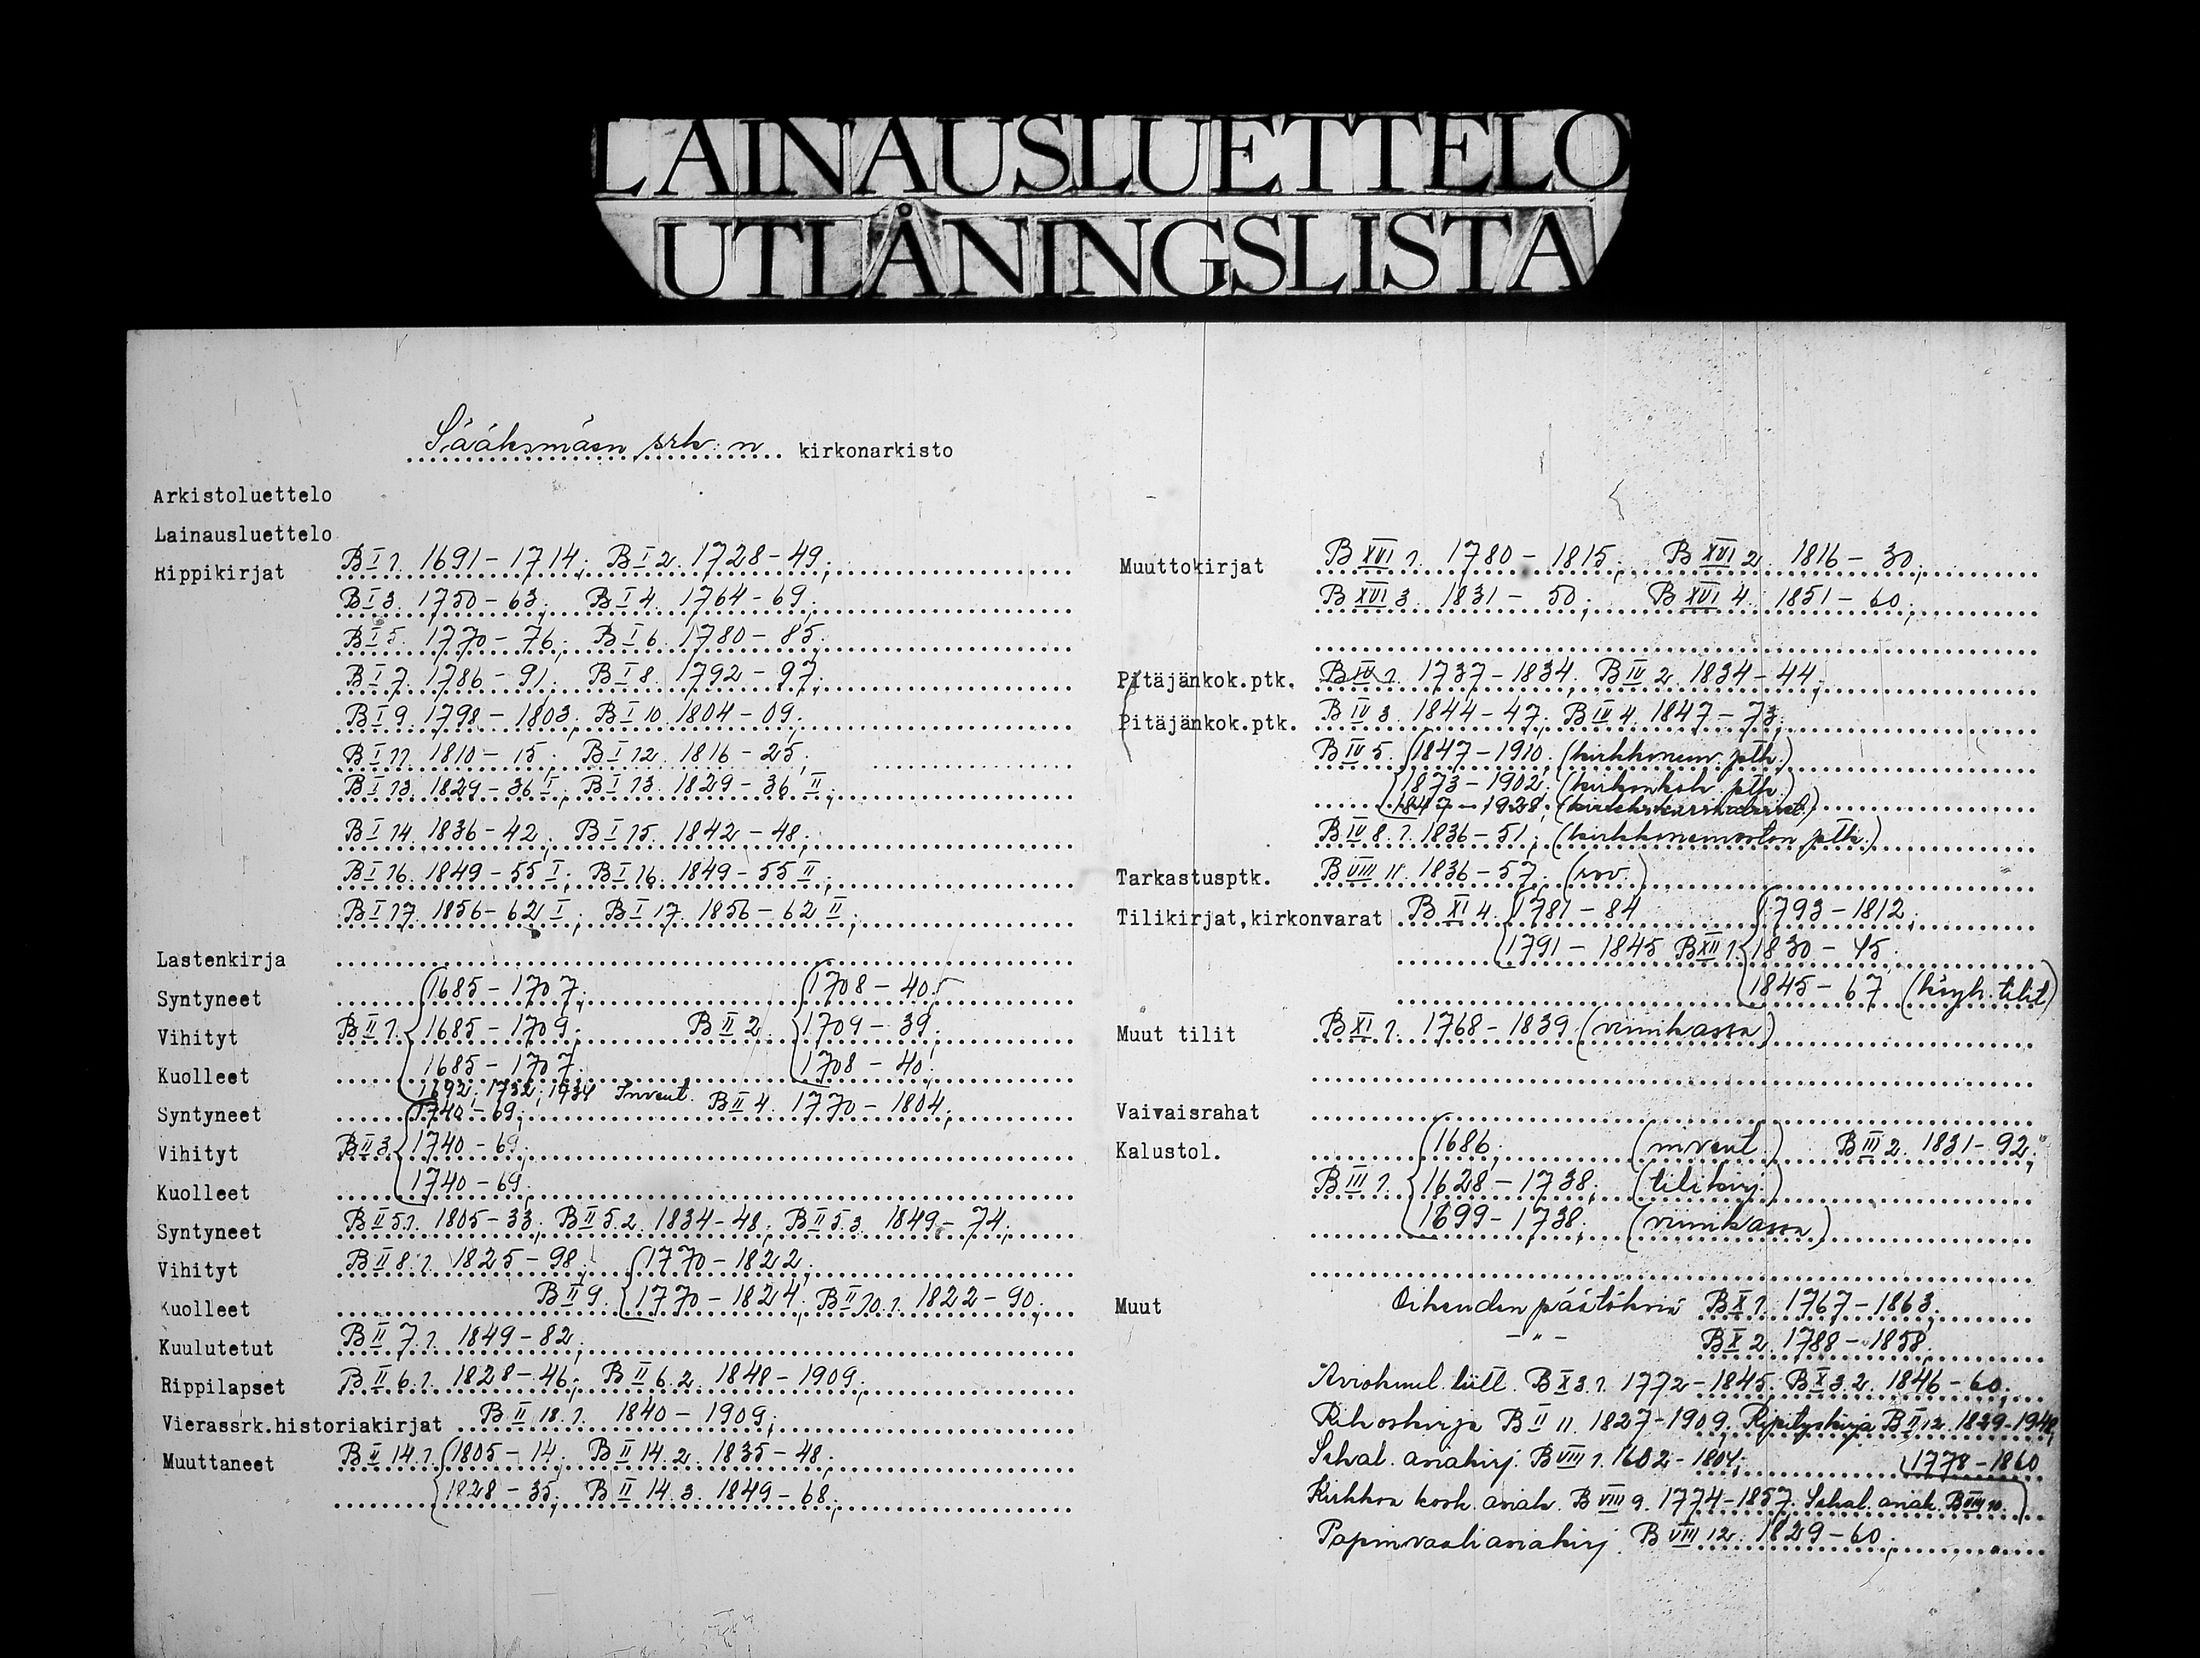 LAINAUSLUETTELO
UTLÅNINGSLISTA
Sääksmäen srk:n kirkonarkisto
Arkistoluettelo
Lainausluettelo
Rippikirjat B I 1. 1691-1714; B I 2. 1728-49;
B I 3. 1750-63; B I 4. 1764-69;
B I 5. 1770-76; B I 6. 1780-85;
B I 7. 1786-91; B I 8. 1792-97;
B I 9. 1798-1803; B I 10. 1804-09;
B I 11. 1810-15; B I 12. 1816-25;
B I 13. 1829-36 I; B I 13. 1829-36 II;
B I 14. 1836-42; B I 15. 1842-48;
B I 16. 1849-55 I; B I 16. 1849-55 II;
B I 17. 1856-62 I; B I 17. 1856-62 II;
Lastenkirja
Syntyneet 1685-1707; 1708-40;
Vihityt B II 1. 1685-1709; B II 2. 1709-39;
Kuolleet 1685-1707; 1708-40;
1692; 1732; 1734 Invent.
Syntyneet 1740-69; B II 4. 1770-1804;
Vihityt B II 3 1740-69;
Kuolleet 1740-69;
Syntyneet B II 5.1. 1805-33; B II 5.2. 1834-48; B II 5.3. 1849-74;
Vihityt B II 8.1. 1825-98; 1770-1822;
Kuolleet B II 9. 1770-1824; B II 10.1. 1822-90;
Kuulutetut B II 7.1. 1849-82;
Rippilapset B II 6.1. 1828-46; B II 6.2. 1848-1909;
Vierassrk.historiakirjat B II 18.1. 1840-1909;
Muuttaneet B II 14.1. 1805-14; B II 14.2. 1835-48;
1828-35; B II 14.3. 1849-68;
Muuttokirjat B XVI 1. 1780-1815; B XVI 2. 1816-30;
B XVI 3. 1831-50; B XVI 4. 1851-60;
Pitäjänkok.ptk. B IV 1. 1737-1834; B IV 2. 1834-44;
Pitäjänkok.ptk. B IV 3. 1844-47; B IV 4. 1847-73;
B IV 5. 1847-1910; (kirkkoneuv. ptk.)
1873-1902; (kirkonkok. ptk.)
1847-1928;
B IV 8.1. 1836-51; (kirkkoneuvoston ptk.)
Tarkastusptk. B VIII 11. 1836-57; (rov.)
Tilikirjat,kirkonvarat B XI 4. 1781-84 1793-1812;
1791-1845 B XII 1. 1830-45;
1845-67 (köyh. tilit)
Muut tilit B XI 1. 1768-1839 (viinikassa)
Vaivaisrahat
Kalustol. 1686; (invent) B III 2. 1831-92;
B III 1. 1628-1738; (tilikirj.)
1699-1738; (viinikassa)
Muut Oikeuden päätöksiä B X 1. 1767-1863;
-"- B X 2. 1788-1858;
Aviokuul. luett. B X 3.1. 1772-1845; B X 3.2. 1846-60;
Rikoskirja B II 11. 1827-1909; Ripityskirja B II 12. 1829-1948;
Sekal. asiakirj. B VIII 1. 1602-1804; 1778-1860
Kirkkoa kosk. asiak. B VIII 9. 1774-1857; Sekal. asiak. B VIII 10.
Papinvaaliasiakirj. B VIII 12. 1829-60;